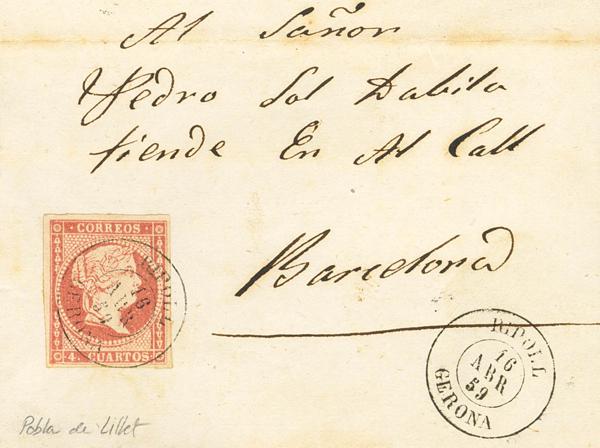 Al Sañor
Pedro Sol Dabila
tiende En Al Call
Barcelona
CORREOS
4 CUARTOS
RIPOLL
16
ABR
59
GERONA
RIPOLL
16
ABR
59
GERONA
Pobla de Lillet